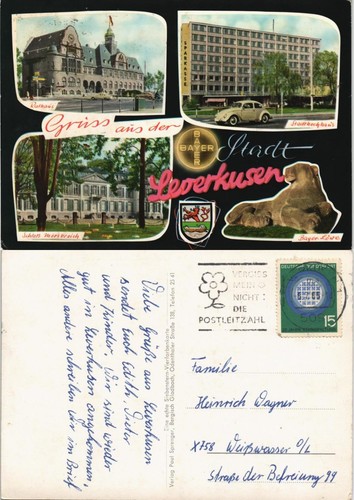 Rathaus
SPARKASSE
Stadthochhaus
Gruss aus der
BAYER
BAYER
Stadt
Leverkusen
Schloß Morsbroich
Bayer-Löwe
Viele Grüße aus Leverkusen
sendet Euch Edith, Dieter
und Kinder. Wir sind wieder
gut in Leverkusen angekommen
Alles andere schreiben wir im Brief
Verlag Paul Sprenger, Bergisch Gladbach, Odenthaler Straße 135, Telefon 35 41
VERGISS
MEIN
NICHT
DIE
POSTLEITZAHL
DEUTSCHE
15
Familie
Heinrich Wagner
X758 Weißwasser O/L
Straße der Befreiung 99